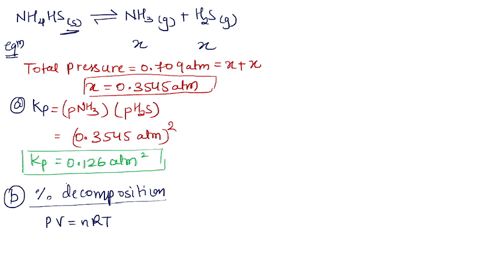 NH4HS(s) ⇌ NH3(g) + H2S(g)
eqm x x
Total pressure = 0.709atm = x + x
x = 0.3545atm
(a) Kp = (pNH3) (pH2S)
= (0.3545 atm)²
Kp = 0.126 atm²
(b) % decomposition
PV = nRT